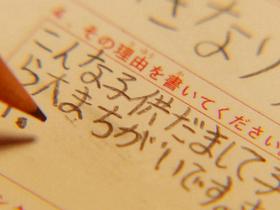 きなり
4. その理由を書いてください
こんな子供だましてう
ら大まちがいです